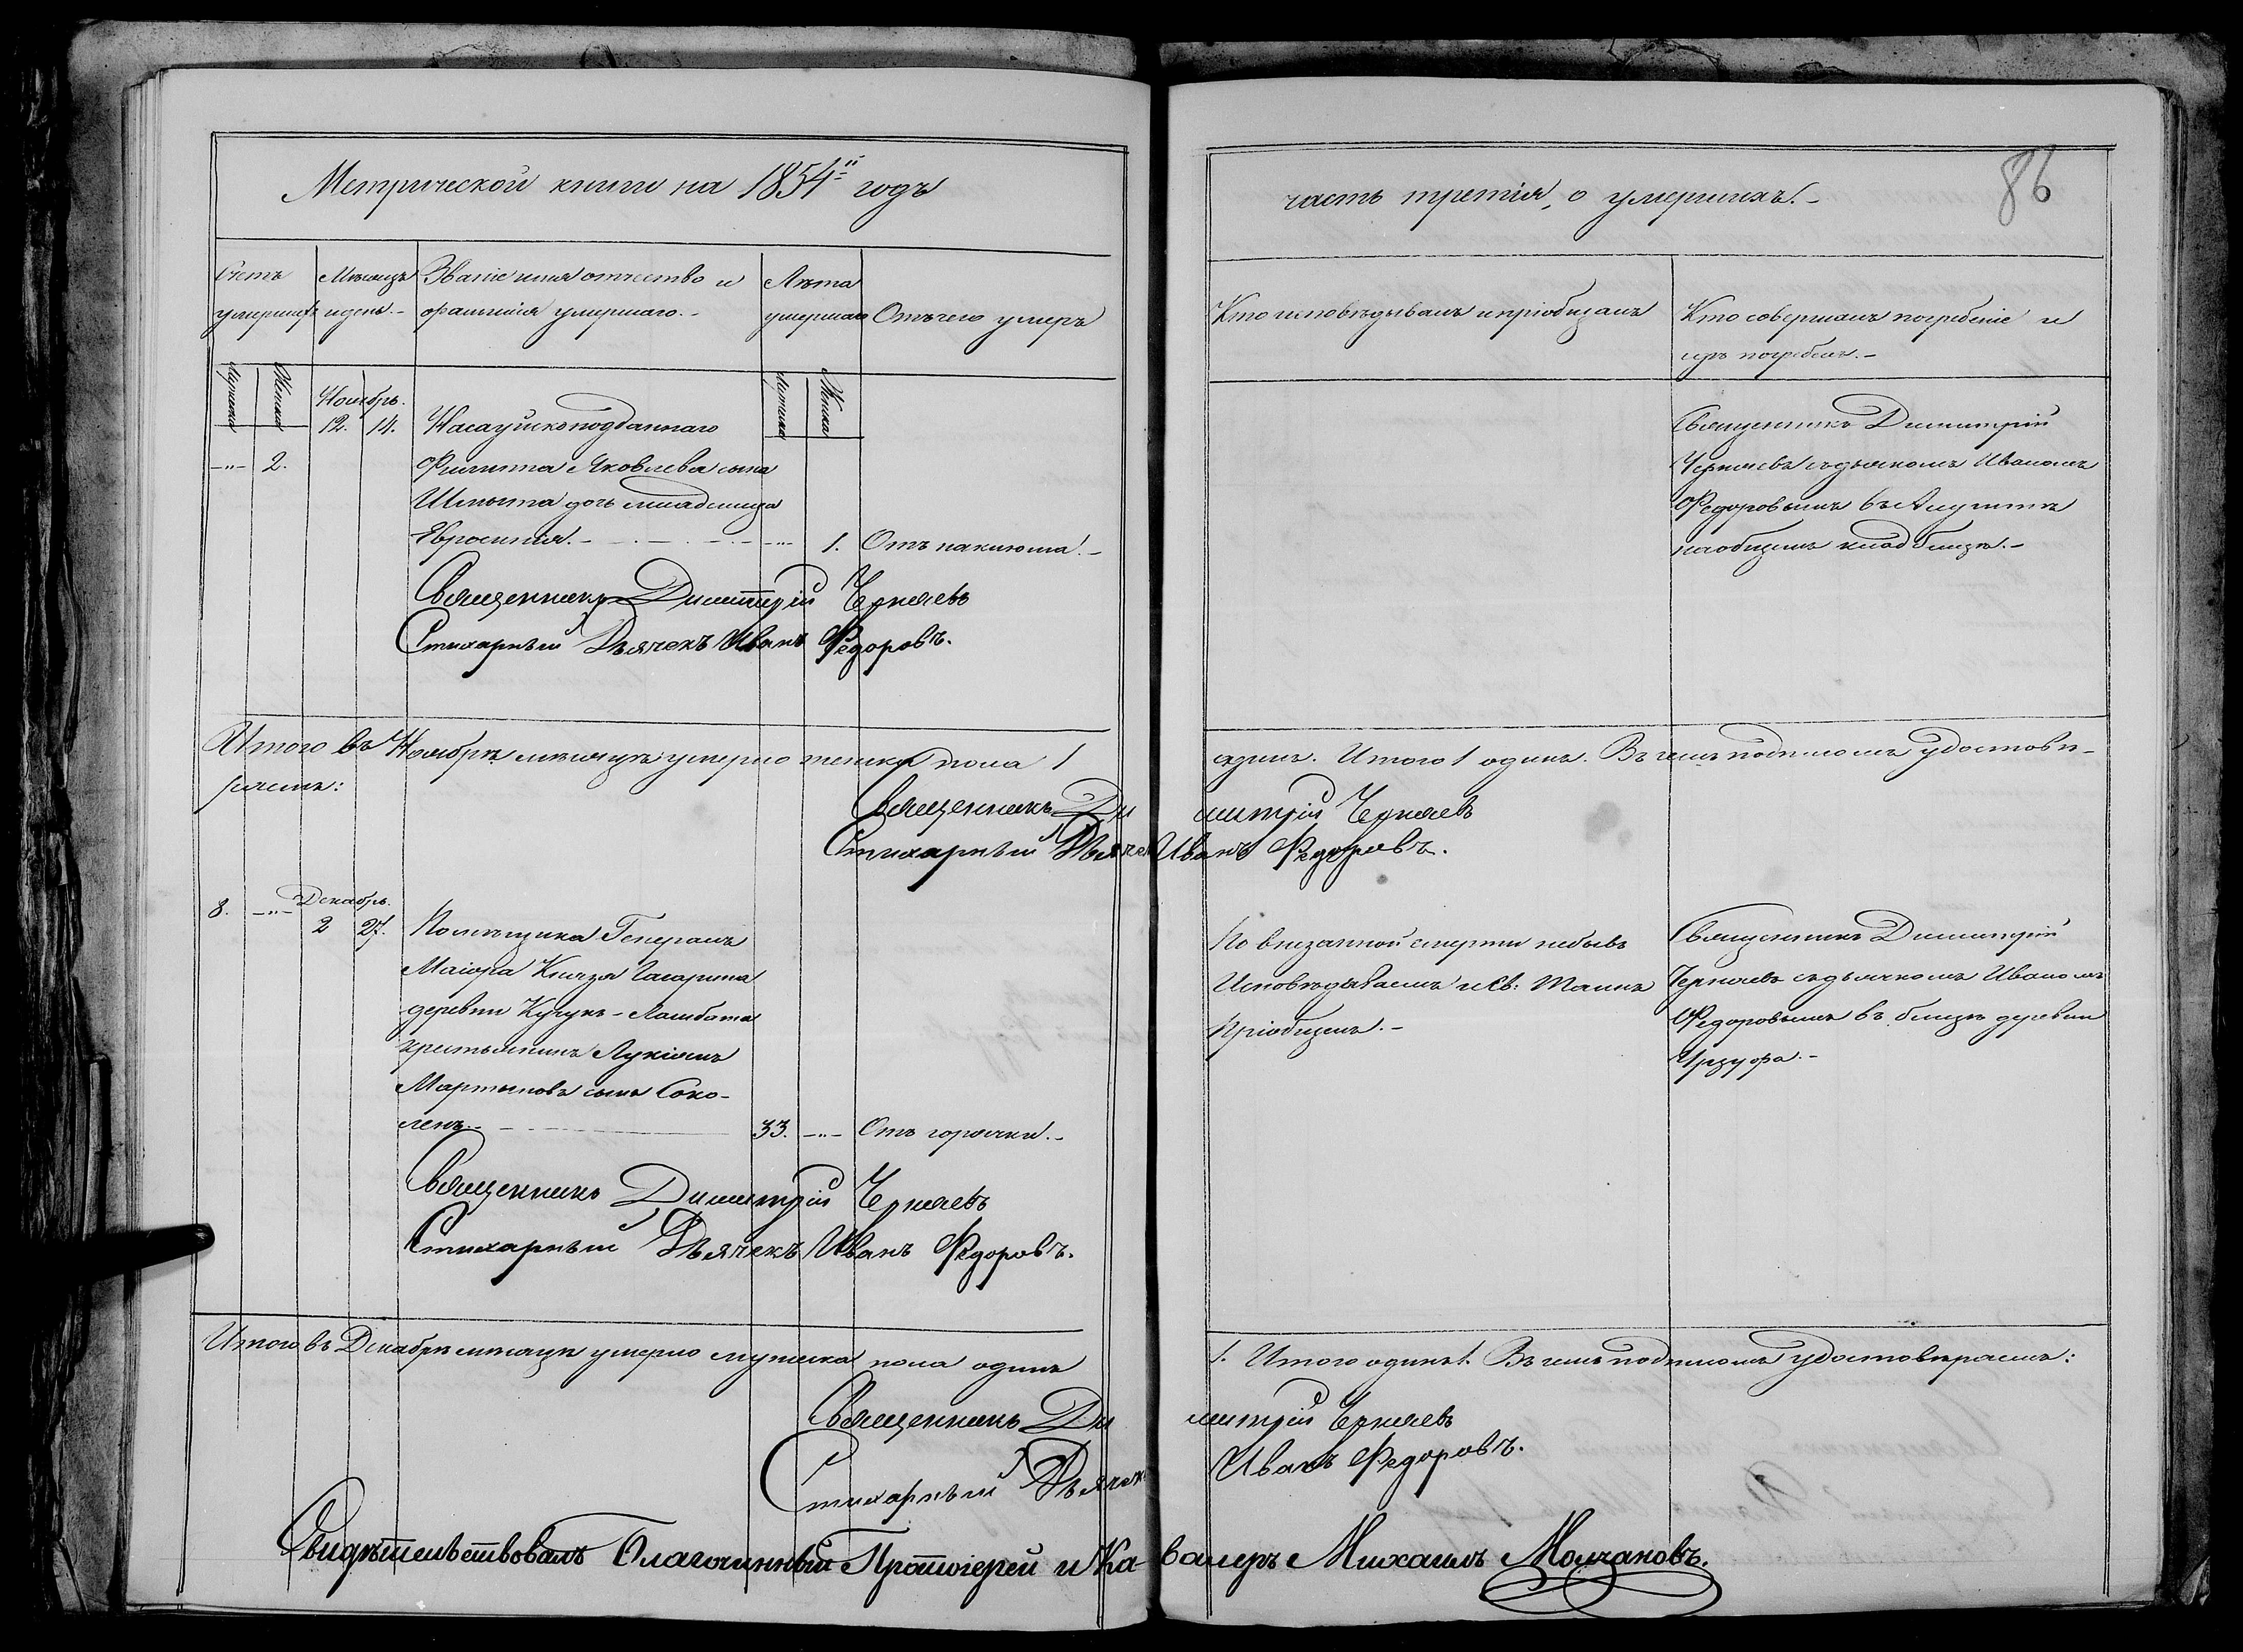 Метрической книги на 1854й годъ
часть третія, о умершихъ.-
86
Счетъ умершихъ
Мѣсяцъ и день.-
Званіе имя отчество и
фамилія умершаго.-
Лѣта
умершаго
Отъ чего умеръ
Кто исповѣдывалъ и пріобщалъ
Кто совершалъ погребеніе и
гдѣ погребенъ.-
Мужеска
Женска
Мужеска
Женска
Ноябрь.
12. 14.
-"- 2.
Насаускоподданнаго
Филиппа Яковлева сына
дочь младеница
Евросинія. - -"- 1. Отъ
Священникъ Димитрій
Черняевъ съ дьячкомъ Иваномъ
Федоровымъ въ
на общемъ кладбищѣ.-
Священникъ Димитрій Черняевъ
Стихарный Дьячекъ Иванъ Федоровъ.
Итого въ Ноябрѣ мѣсяцѣ умерло женска пола 1 одинъ. Итого 1 одинъ. Въ чемъ подписомъ удостовѣ-
ряемъ:
Священникъ Димитрій Черняевъ
Стихарный Дьячекъ Иванъ Федоровъ.
Декабрь.
8. -"- 2 27.
Помѣщика Генералъ
Маіора Князя Гагарина
деревни Кучукъ-Ламбата
крестьянинъ Лукіянъ
Мартыновъ сынъ Соко-
ленъ.- 33. -"- Отъ горячки.-
По внезапной смерти небывъ
Исповѣдываемъ и Св: Таинъ
Пріобщенъ.-
Священникъ Димитрій
Черняевъ съ дьячкомъ Иваномъ
Федоровымъ въ близъ деревни
Урзуфа.-
Священникъ Димитрій Черняевъ
Стихарный Дьячекъ Иванъ Федоровъ.
Итого въ Декабрѣ мѣсяцѣ умерло мужеска пола одинъ 1. Итого одинъ 1. Въ чемъ подписомъ удостовѣряемъ:
Священникъ Димитрій Черняевъ
Стихарный Дьячекъ Иванъ Федоровъ.
Свидѣтельствовалъ Благочинный Протоіерей и Кавалеръ Михаилъ Молчановъ.